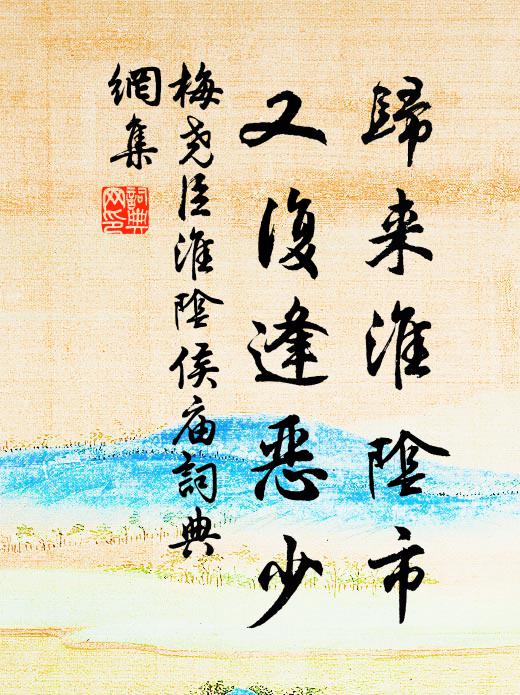 歸来淮陰市
又復逢惡少
梅尧臣淮陰侯庙詞典
網集
詞典
网印